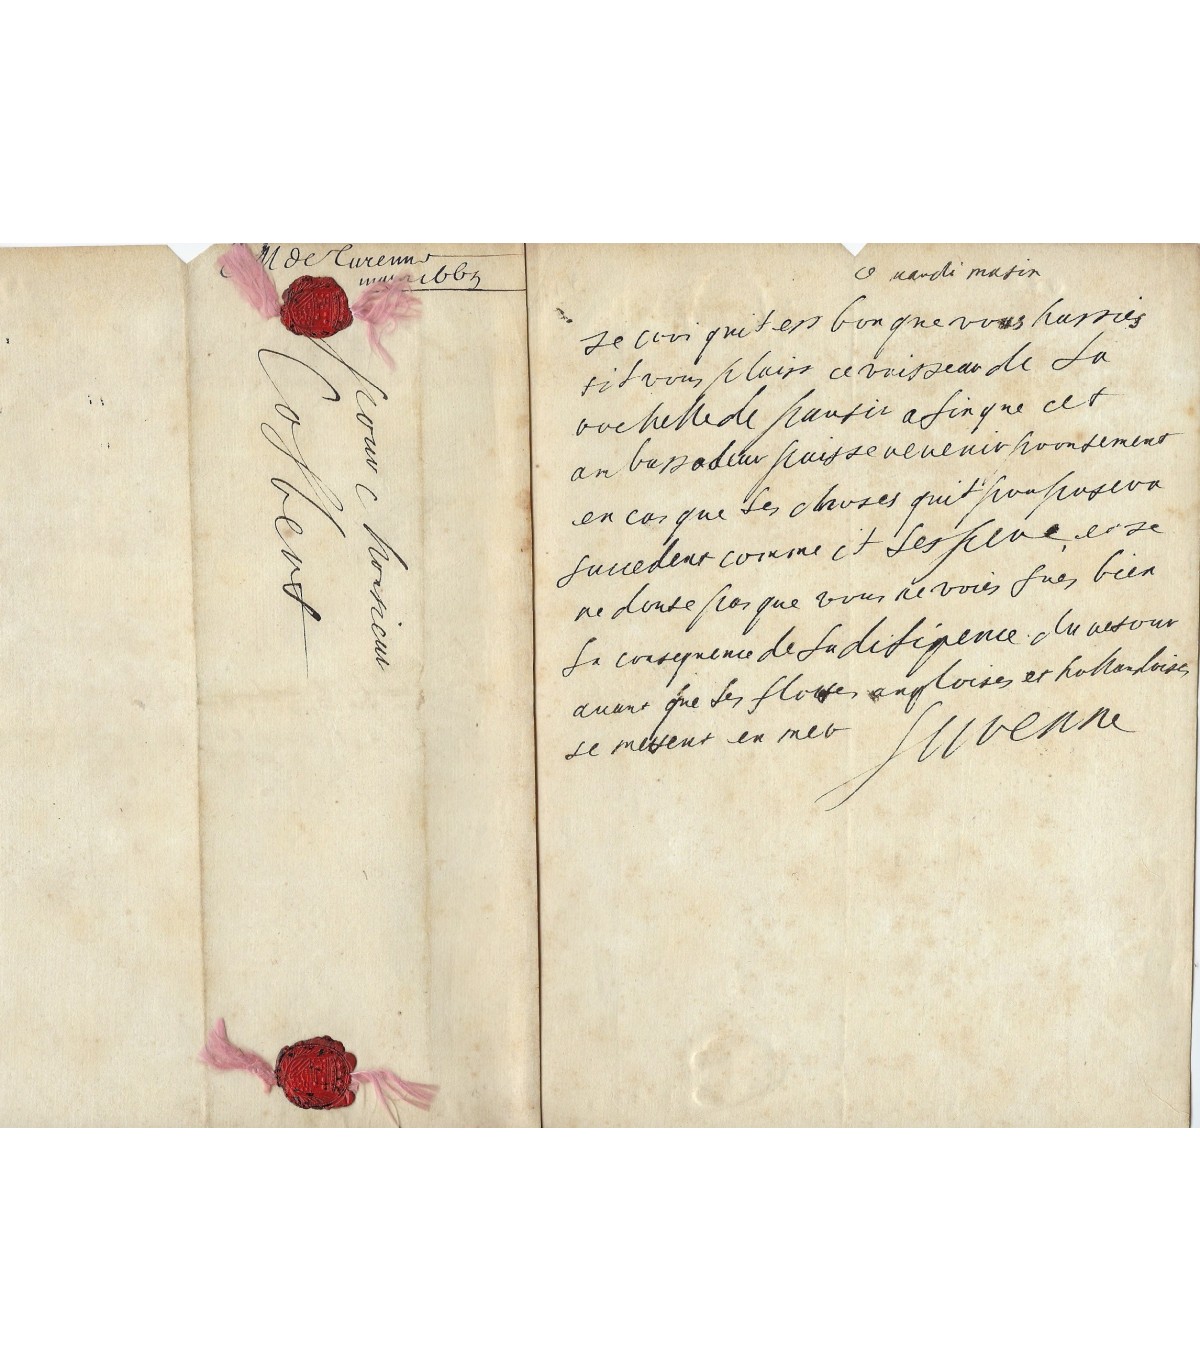 M de Turenne
1665
pour Monsieur
Colbert
ce mardi matin
je croi quil est bon que vous hastiés
sil vous plaist ce vaisseau de la
rochelle de partir afin que cet
ambassadeur puisse revenir prontement
en cas que les choses quil proposera
succedent comme il lespere et je
ne doute pas que vous ne voiés tres bien
la consequence de la diligence du retour
avant que les flottes angloises et hollandoises
se mettent en mer Turenne